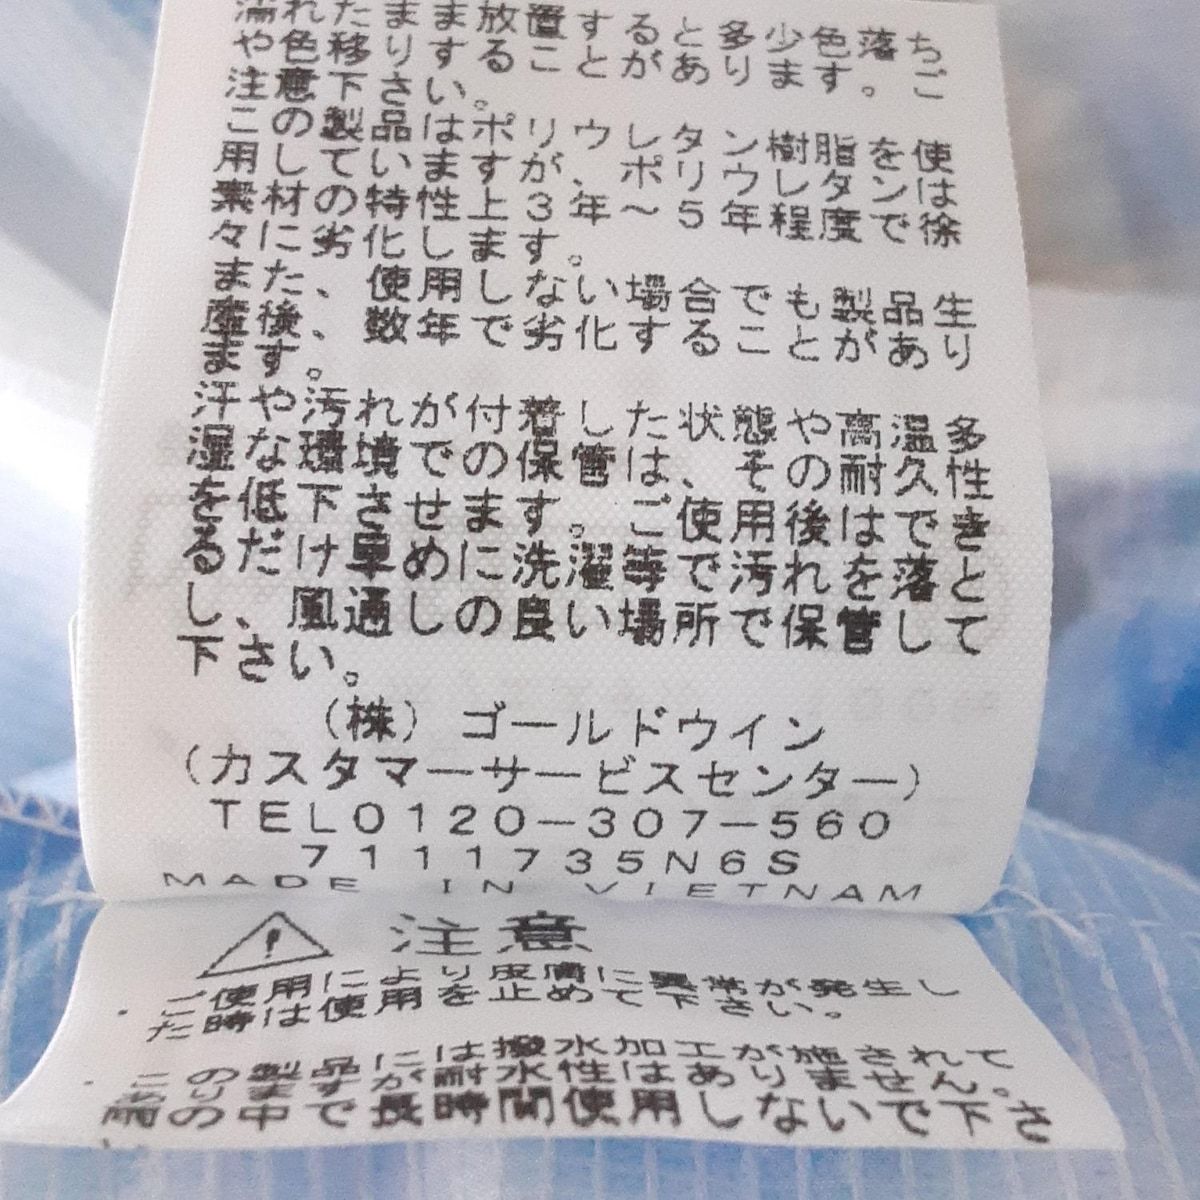 濡れたまま放置すると多少色落ち
や色移りすることがあります。ご
注意下さい。
この製品はポリウレタン樹脂を使
用していますが、ポリウレタンは
素材の特性上3年～5年程度で徐
々に劣化します。
また、使用しない場合でも製品生
産後、数年で劣化することがあり
ます。
汗や汚れが付着した状態や高温多
湿な環境での保管は、その耐久性
を低下させます。ご使用後はでき
るだけ早めに洗濯等で汚れを落と
し、風通しの良い場所で保管して
下さい。
(株)ゴールドウイン
(カスタマーサービスセンター)
TEL0120-307-560
7111735N6S
MADE IN VIETNAM
注意
・ご使用により皮膚に異常が発生し
た時は使用を止めて下さい。
・この製品には撥水加工が施されて
おりますが耐水性はありません。
雨の中で長時間使用しないで下さ